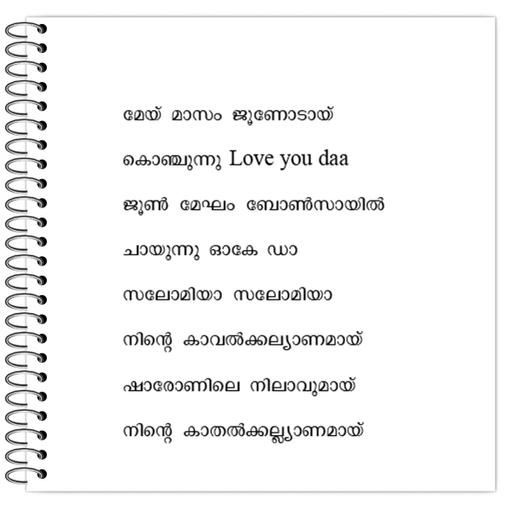 മേയ് മാസം ജൂണോടായ്
കൊഞ്ചുന്നു Love you daa
ജൂൺ മേഘം ബോൺസായിൽ
ചായുന്നു ഓകേ ഡാ
സലോമിയാ സലോമിയാ
നിന്റെ കാവൽക്കല്യാണമായ്
ഷാരോണിലെ നിലാവുമായ്
നിന്റെ കാതൽക്കല്ല്യാണമായ്